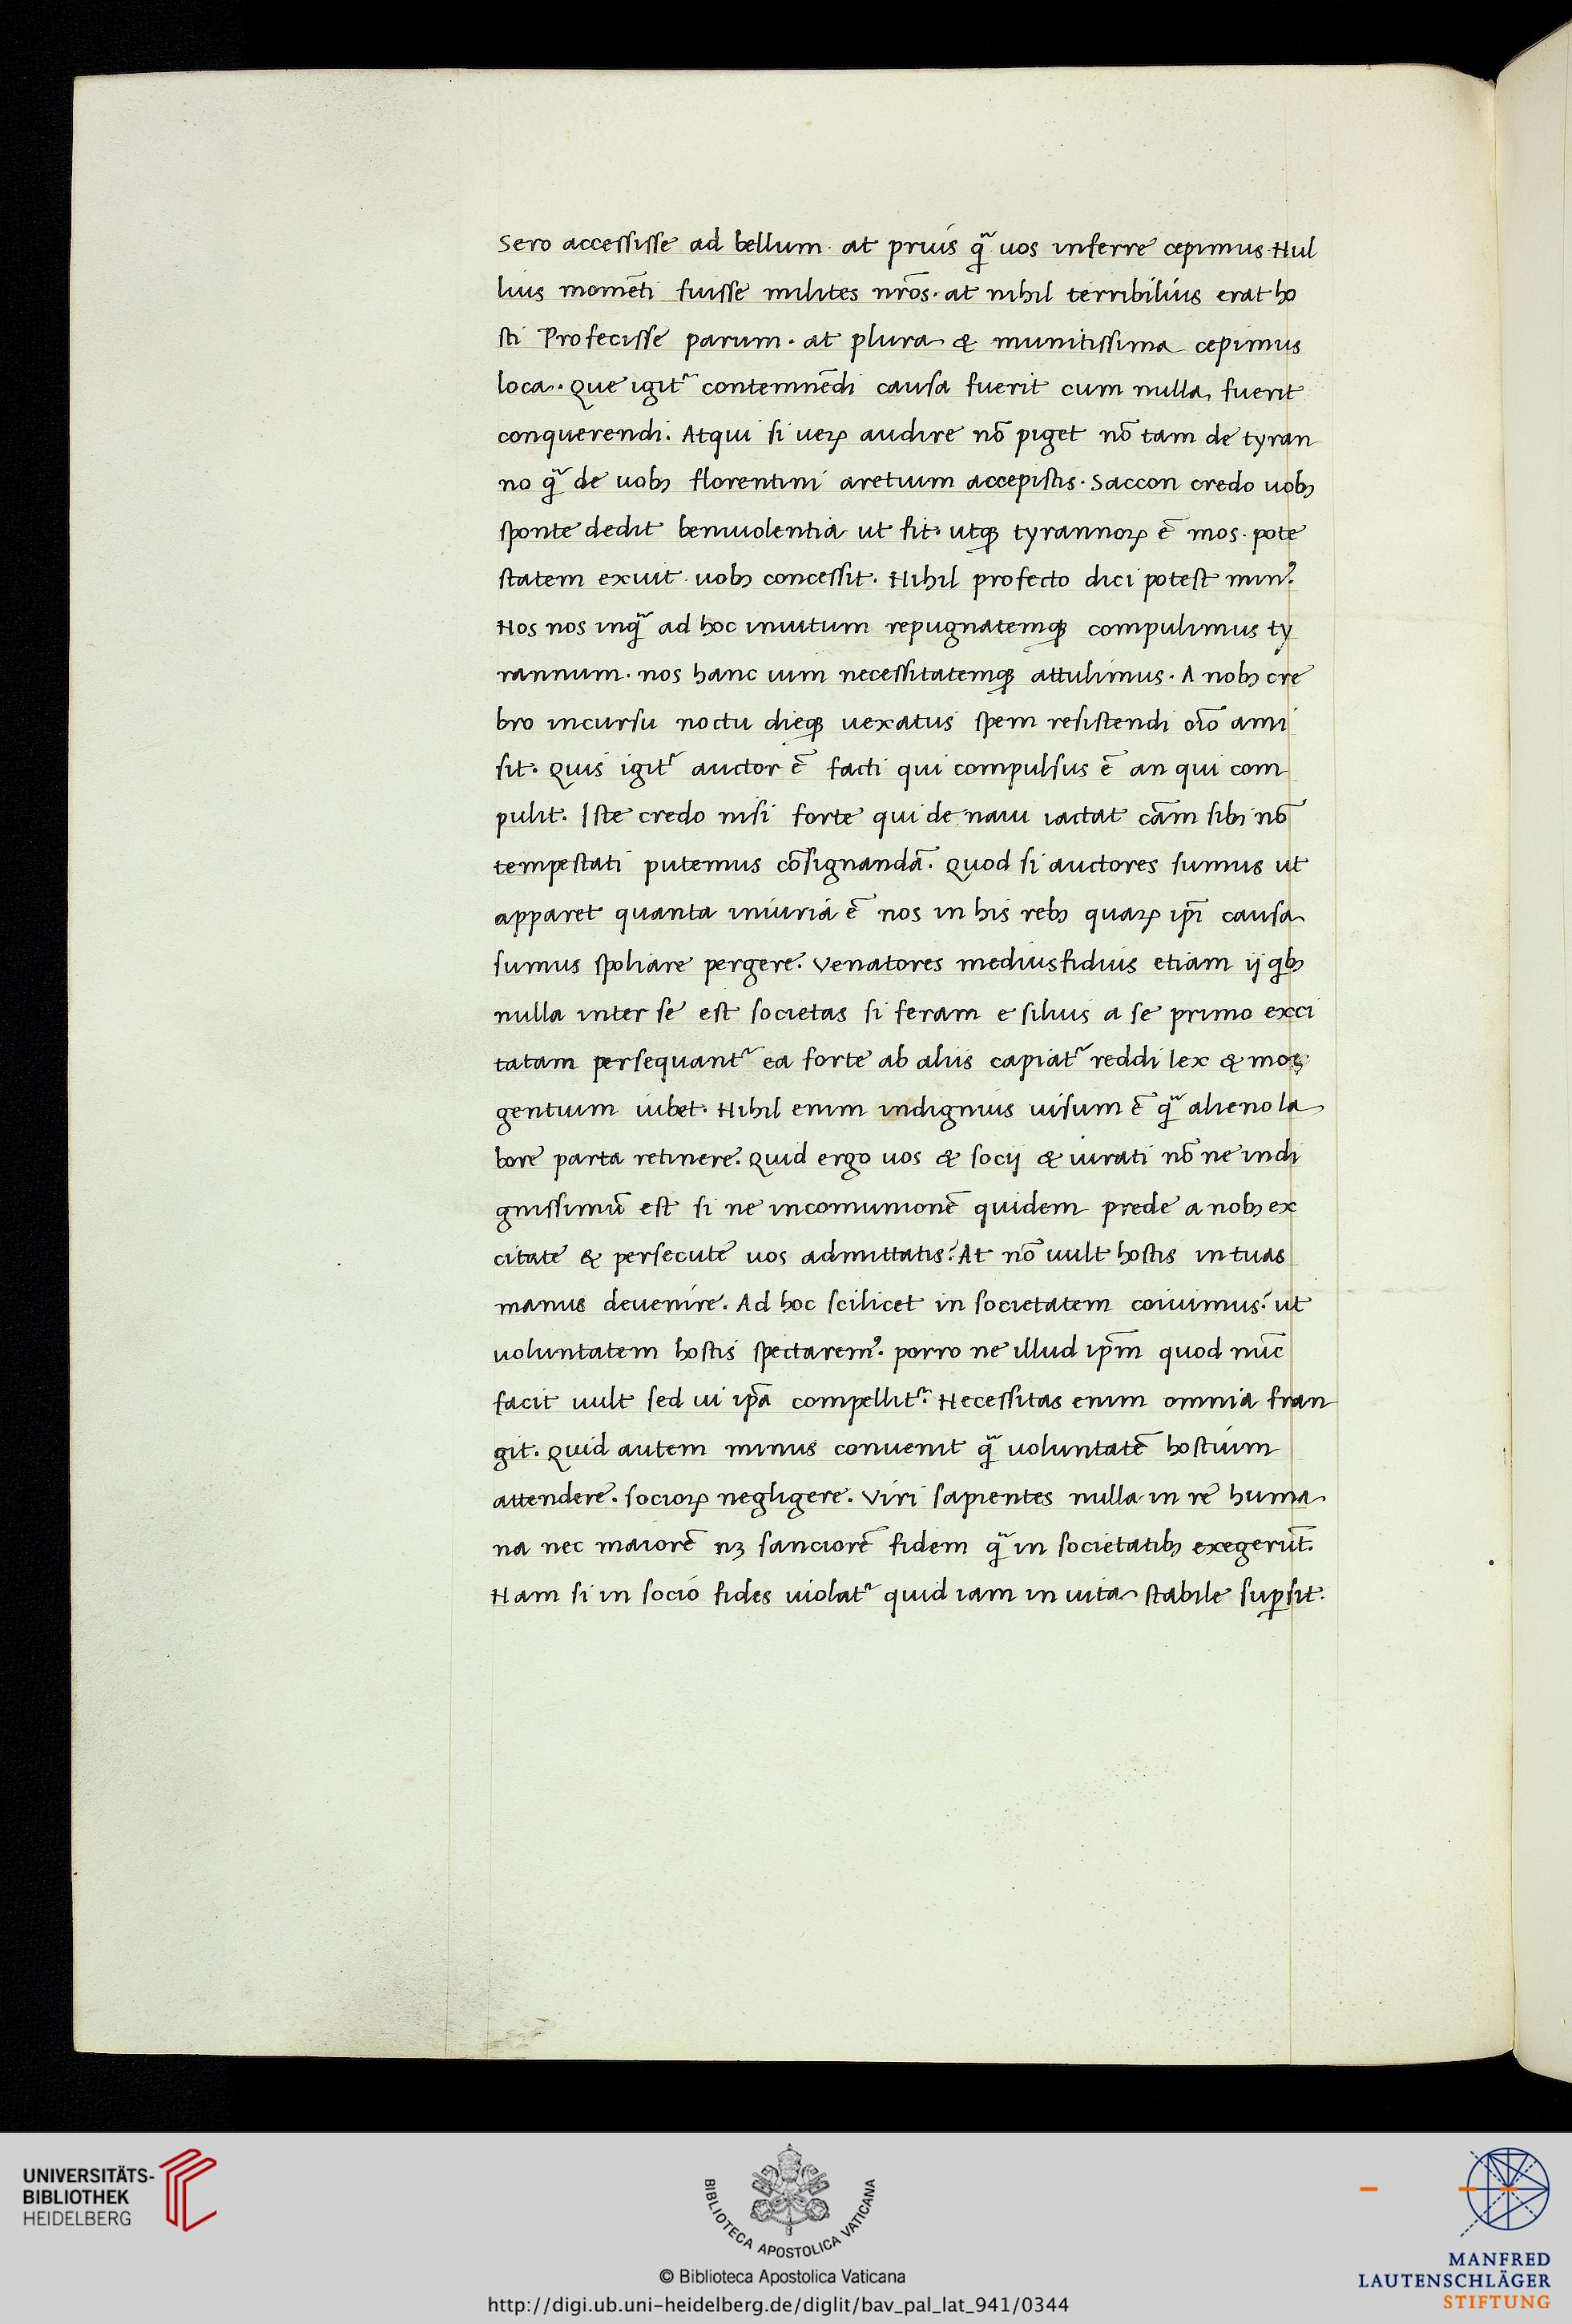 Sero accessisse ad bellum. at prius q̃ uos inferre cepimus. Nul
lius momẽti fuisse milites nr̃os. at nihil terribilius erat ho
sti Profecisse parum. at plura & munitissima cepimus
loca. Que igitʳ contemnẽdi causa fuerit cum nulla fuerit
conquerendi. Atqui si ueꝝ audire nõ piget nõ tam de tyran
no q̃ de uob₃ florentini aretium accepistis. Saccon credo uob₃
sponte dedit beniuolentia ut fit. utqꝫ tyrannoꝝ ẽ mos. pote
statem exuit. uob₃ concessit. Nihil profecto dici potest minꝰ.
Nos nos inq̃ ad hoc inuitum repugnatemqꝫ compulimus ty
rannum. nos hanc uim necessitatemqꝫ attulimus. A nob₃ cre
bro incursu noctu dieqꝫ uexatus spem resistendi oĩo ami
sit. Quis igitʳ auctor ẽ facti qui compulsus ẽ an qui com
pulit. Iste credo nisi forte qui de naui iactat cãm sibi nõ
tempestati putemus cõsignandã. Quod si auctores sumus ut
apparet quanta iniuria ẽ nos in his reb₃ quaꝝ ip̃i causa
sumus spoliare pergere. Venatores mediusfidius etiam ij qib₃
nulla inter se est societas si feram e siluis a se primo exci
tatam persequantʳ ea forte ab aliis capiatʳ reddi lex & mos
gentium iubet. Nihil enim indignius uisum ẽ q̃ alieno la
bore parta retinere. Quid ergo uos & socij & iurati nõ ne indi
gnissimũ est si ne incomunionẽ quidem prede a nob₃ ex
citate & persecute uos admittatis? At nõ uult hostis in tuas
manus deuenire. Ad hoc scilicet in societatem coiuimus? ut
uoluntatem hostis spectaremꝰ. porro ne illud ip̃m quod nũc
facit uult sed ui ip̃a compellitʳ. Necessitas enim omnia fran
git. Quid autem minus conuenit q̃ uoluntatẽ hostium
attendere. socioꝝ negligere. Viri sapientes nulla in re huma
na nec maiorẽ nꝫ sanctiorẽ fidem q̃ in societatib₃ exegerũt.
Nam si in socio fides uiolatʳ quid iam in uita stabile suꝑsit.
UNIVERSITÄTS-
BIBLIOTHEK
HEIDELBERG
BIBLIOTECA APOSTOLICA VATICANA
© Biblioteca Apostolica Vaticana
http://digi.ub.uni-heidelberg.de/diglit/bav_pal_lat_941/0344
MANFRED
LAUTENSCHLÄGER
STIFTUNG